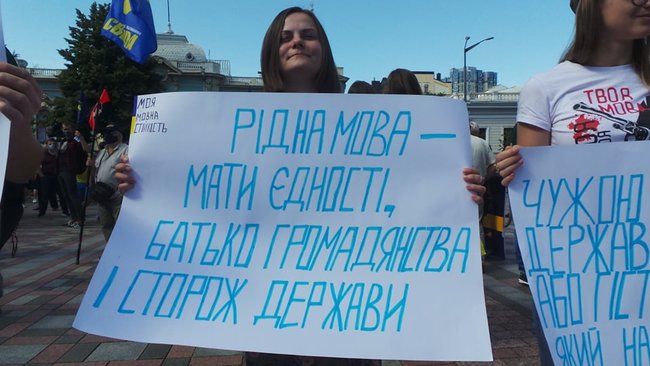 МОЯ
МОВНА
СТІЙКІСТЬ
РІДНА МОВА –
МАТИ ЄДНОСТІ,
БАТЬКО ГРОМАДЯНСТВА
І СТОРОЖ ДЕРЖАВИ
ТВОЯ
МОВ
ЧУЖОЮ
ДЕРЖАВ
АБО ГІСТ
ЯКИЙ НА